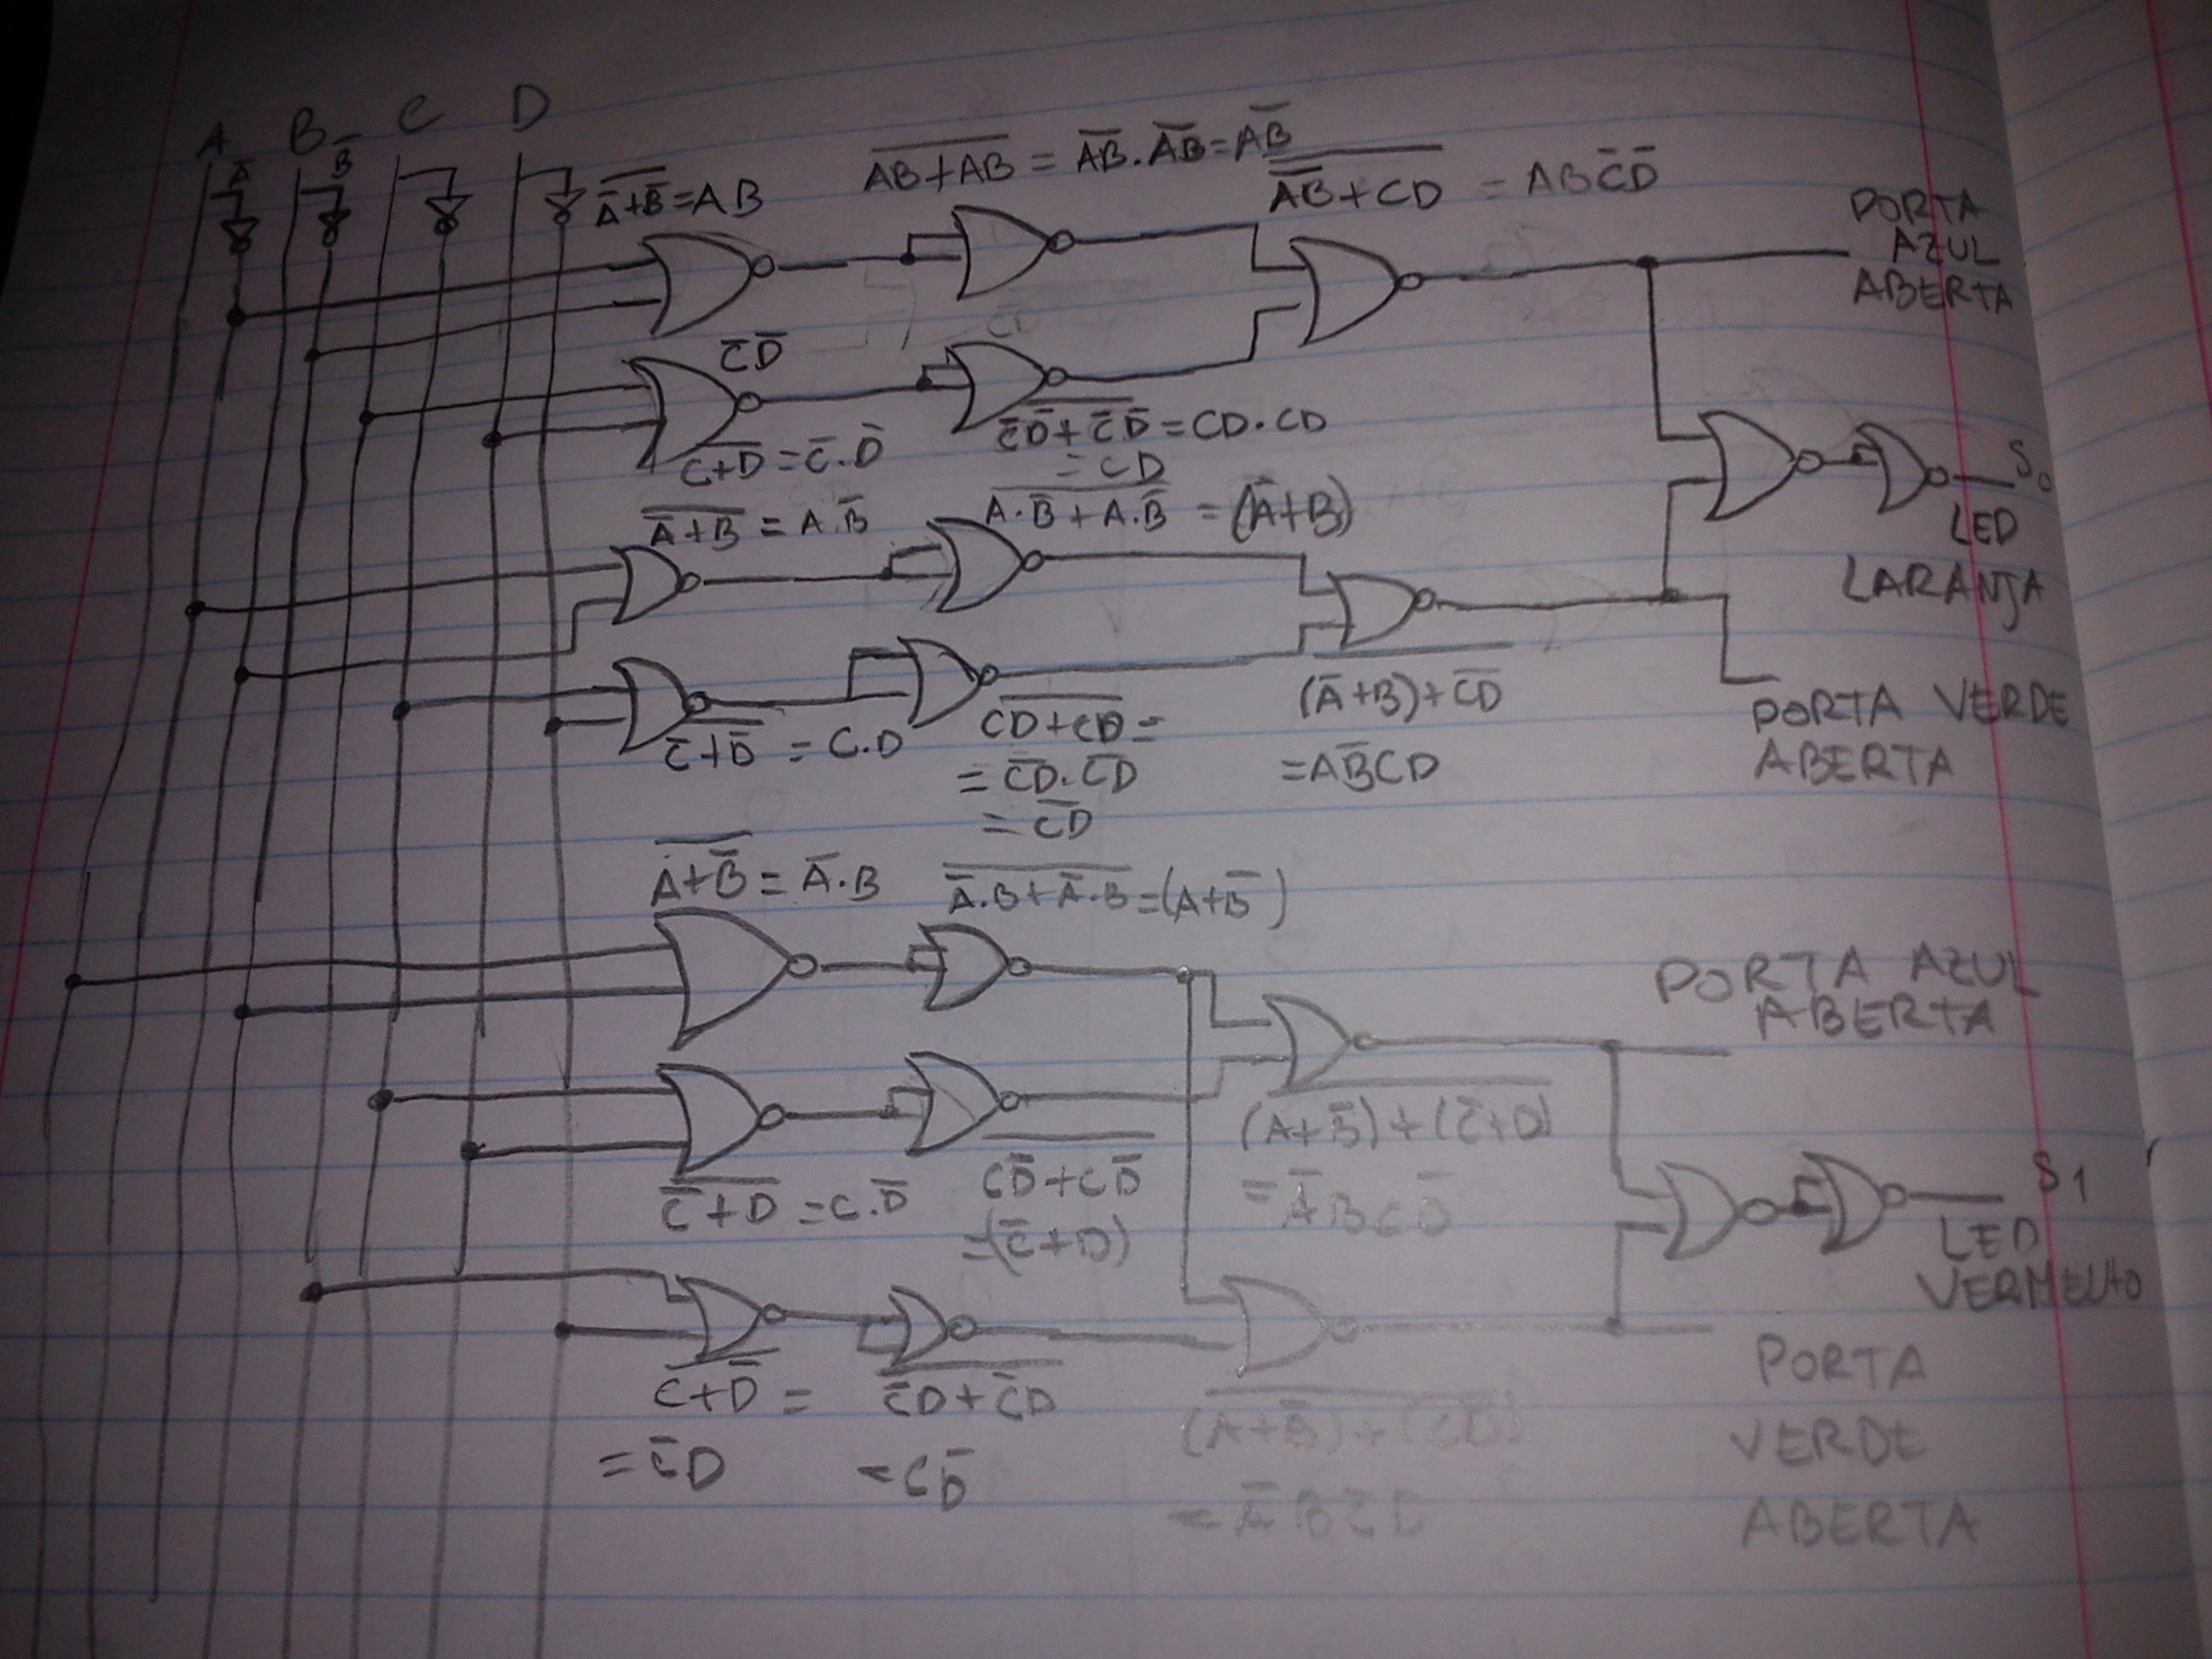 A B C D
A̅ B̅
\overline{A̅+B̅} = AB
\overline{AB+AB} = \overline{AB}.\overline{AB} = \overline{AB}
\overline{\overline{AB}+CD} = ABC̅D̅
PORTA
AZUL
ABERTA
C̅D̅
\overline{C+D} = C̅.D̅
\overline{C̅D̅+C̅D̅} = CD.CD
= CD
S0
LED
LARANJA
\overline{A̅+B} = A.B̅
\overline{A.B̅+A.B̅} = (A̅+B)
\overline{C̅+D̅} = C.D
\overline{CD+CD} =
= \overline{CD}.\overline{CD}
= \overline{CD}
\overline{(A̅+B)+\overline{CD}}
= AB̅CD
PORTA VERDE
ABERTA
\overline{A+B̅} = A̅.B
\overline{A̅.B+A̅.B} = (A+B̅)
PORTA AZUL
ABERTA
\overline{C̅+D} = C.D̅
\overline{CD̅+CD̅}
= (C̅+D)
\overline{(A+B̅)+(C̅+D)}
= A̅BCD̅
S1
LED
VERMELHO
\overline{C+D̅} =
= C̅D
\overline{C̅D+C̅D}
= CD̅
\overline{(A+B̅)+(CD̅)}
= A̅BC̅D
PORTA
VERDE
ABERTA